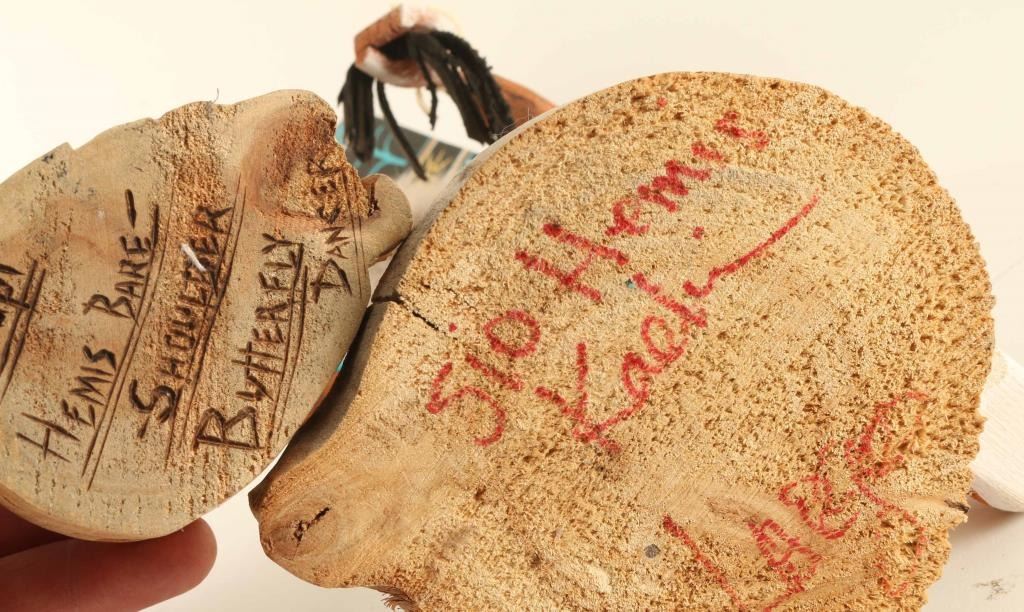 HEMIS BARE-
SHOULTER
BUTTERFLY
DANCER
SIO Hemis
Kachi